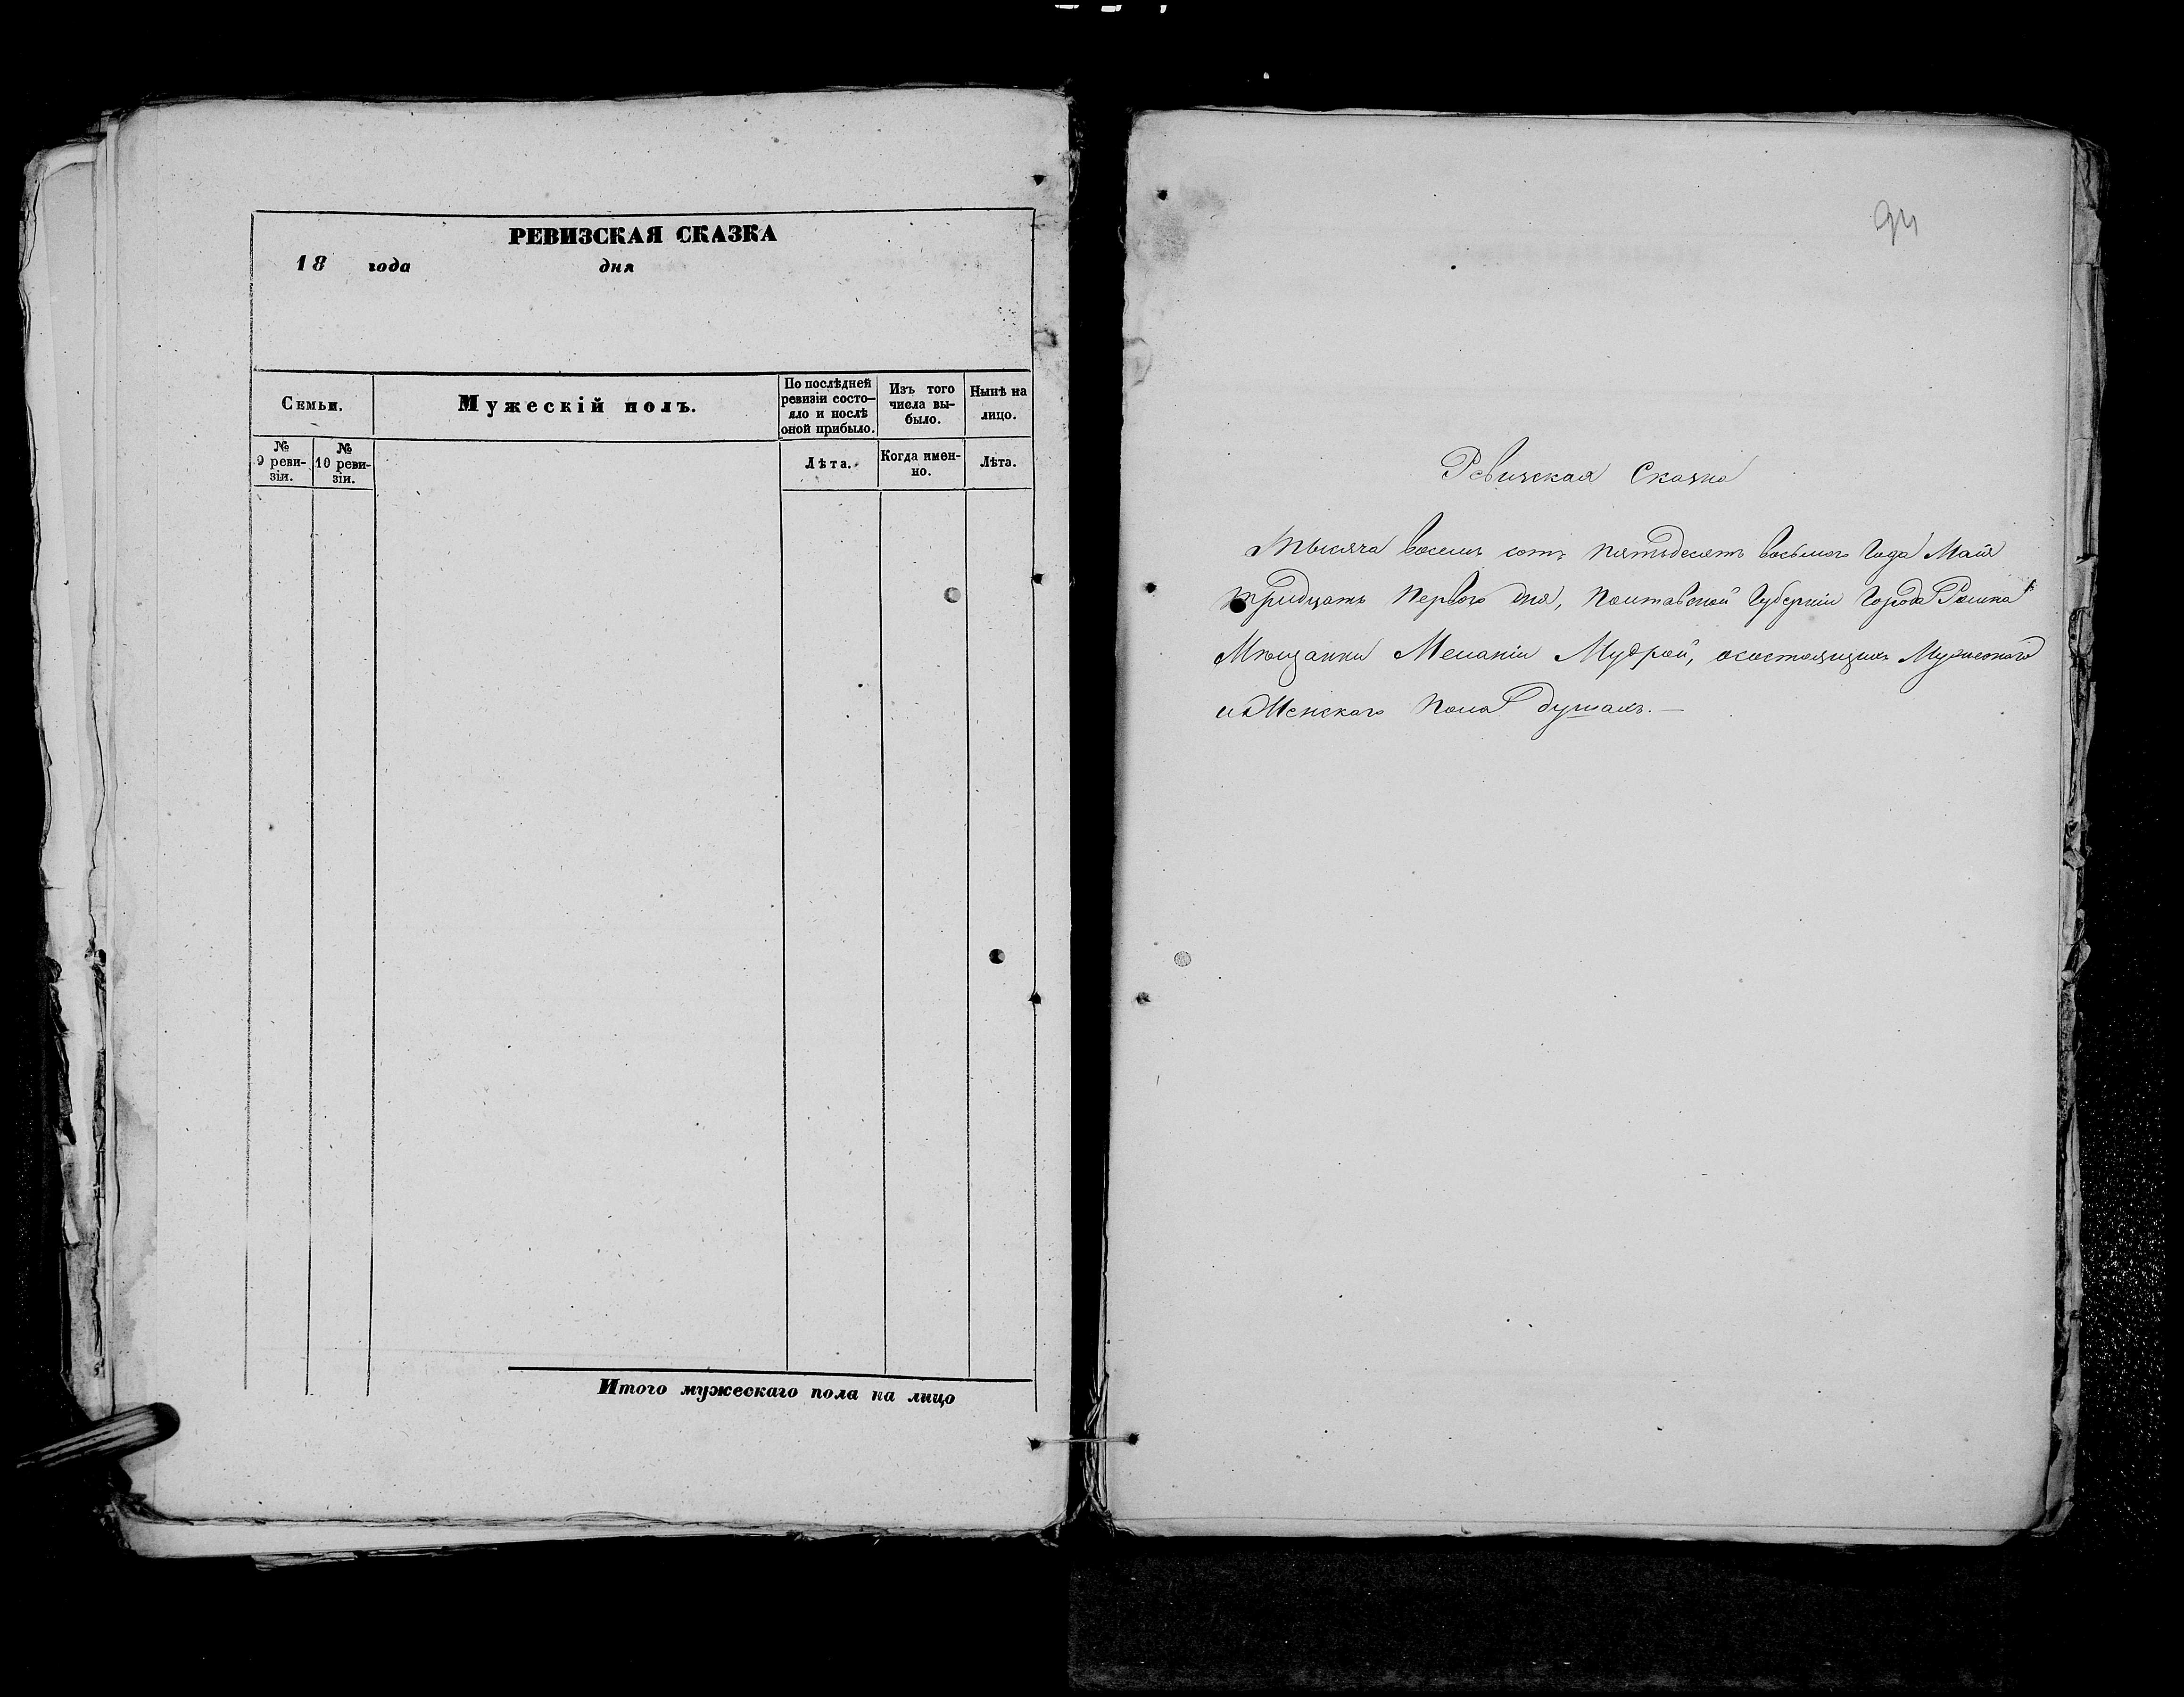 РЕВИЗСКАЯ СКАЗКА
18 года дня
Семьи.
Мужескій полъ.
По послѣдней ревизіи состо-
яло и послѣ оной прибыло.
Изъ того числа вы-
было.
Нынѣ на лицо.
№ 9 реви-
зіи.
№ 10 реви-
зіи.
Лѣта.
Когда имен-
но.
Лѣта.
Итого мужескаго пола на лицо
94
Ревизская Сказка
Тысяча восемь сотъ пятьдесятъ восьмого Года Мая
тридцать первого дня, Полтавской Губерніи Города Ромна
Мѣщанки Меланіи Мудрой, осостоящихъ Мужеского
и Женскаго Пола душахъ.—